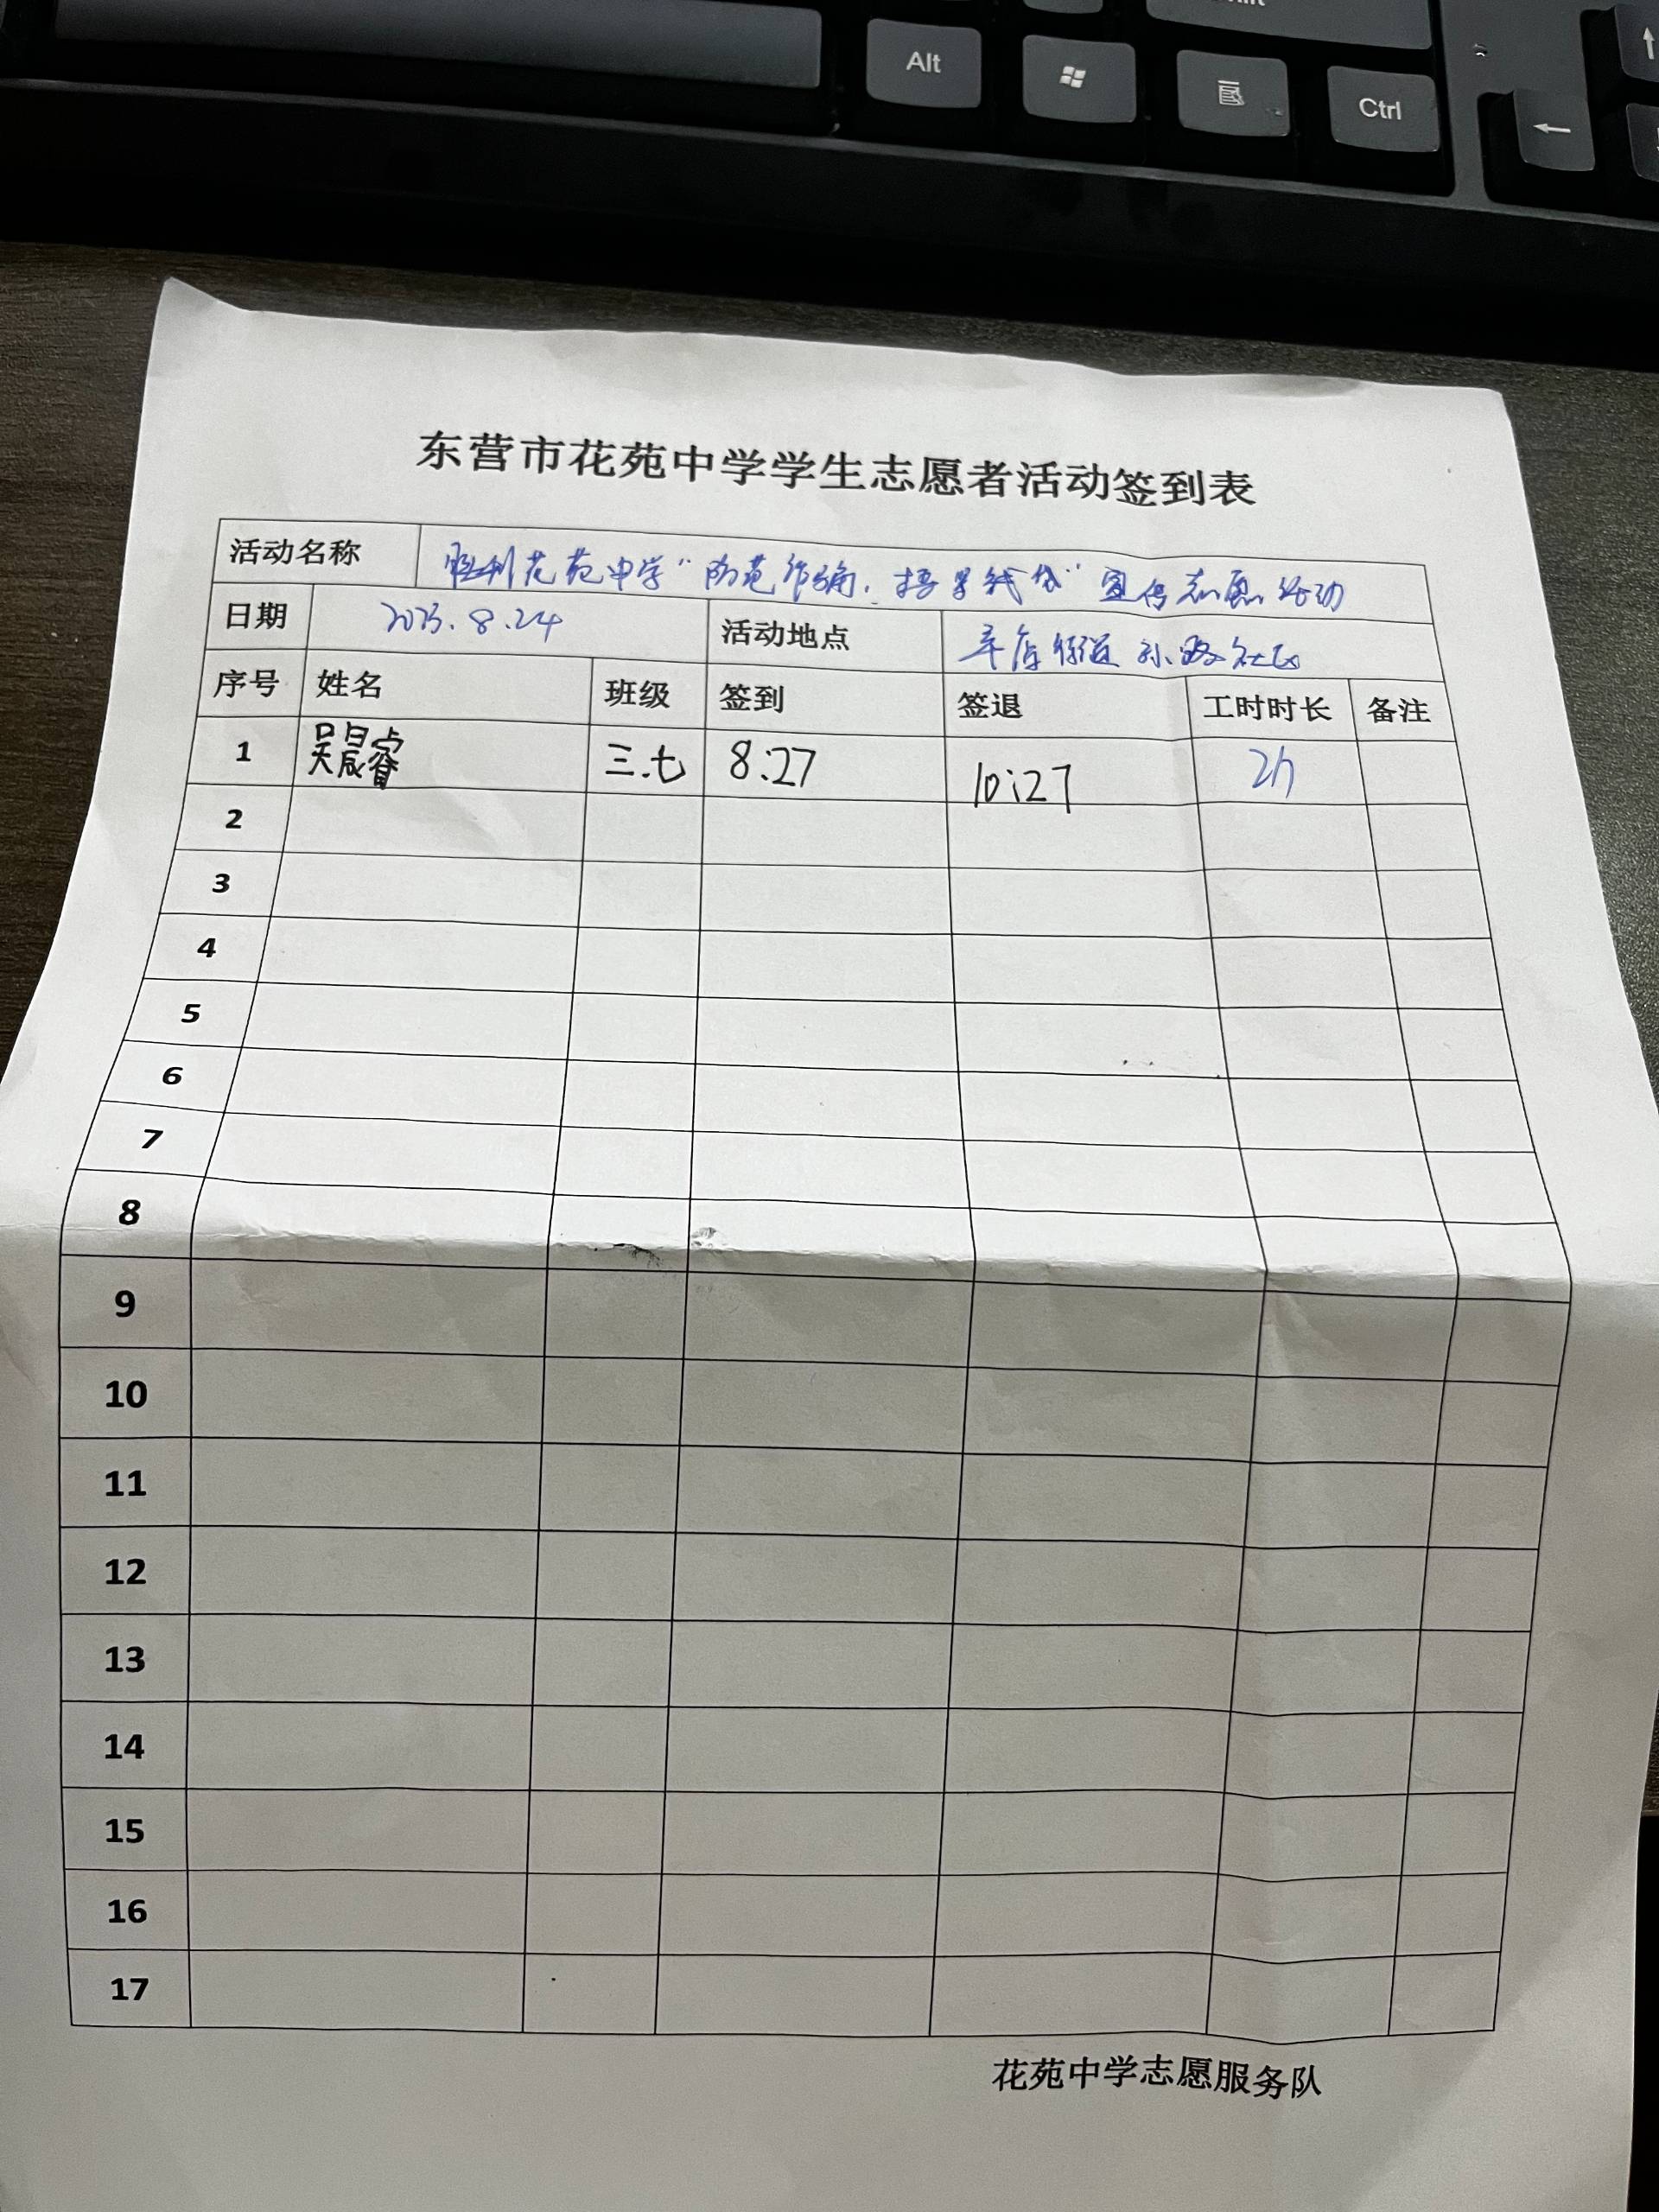 Alt
Ctrl
东营市花苑中学学生志愿者活动签到表
活动名称 胜利花苑中学"防范诈骗,拒绝贷"宣传志愿活动
日期 2023.8.24 活动地点 辛店街道 社区
序号 姓名 班级 签到 签退 工时时长 备注
1 吴晨睿 三.七 8:27 10:27 2h
2
3
4
5
6
7
8
9
10
11
12
13
14
15
16
17
花苑中学志愿服务队